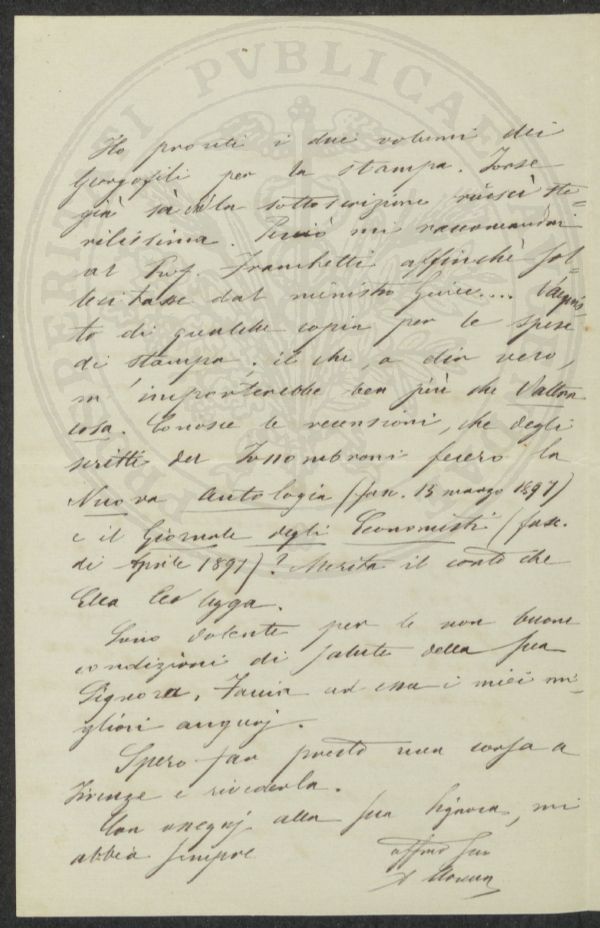 Ho pronti i due volumi dei
Georgofili per la stampa. Forse
già sà che la sottoscrizione riuscì ste-
rilissima. Perciò mi raccomandai
al Prof. Franchetti affinchè sol-
lecitasse dal ministro .... l'acquis-
to di qualche copia per le spese
di stampa; il che, a dir vero,
m'importerebbe ben più che l'altra
cosa. Conosce le recensioni, che degli
scritti del Fossombroni fecero la
Nuova Antologia (fasc. 15 marzo 1897)
e il Giornale degli Economisti (fasc.
di Aprile 1897)? Merita il conto che
Ella le legga.
Sono dolente per le non buone
condizioni di salute della sua
Signora. Faccia ad essa i miei mi-
gliori augurj.
Spero far presto una corsa a
Firenze e rivederla.
Con ossequj alla sua Signora, mi
abbia sempre affmo suo
A
PVBLICAE